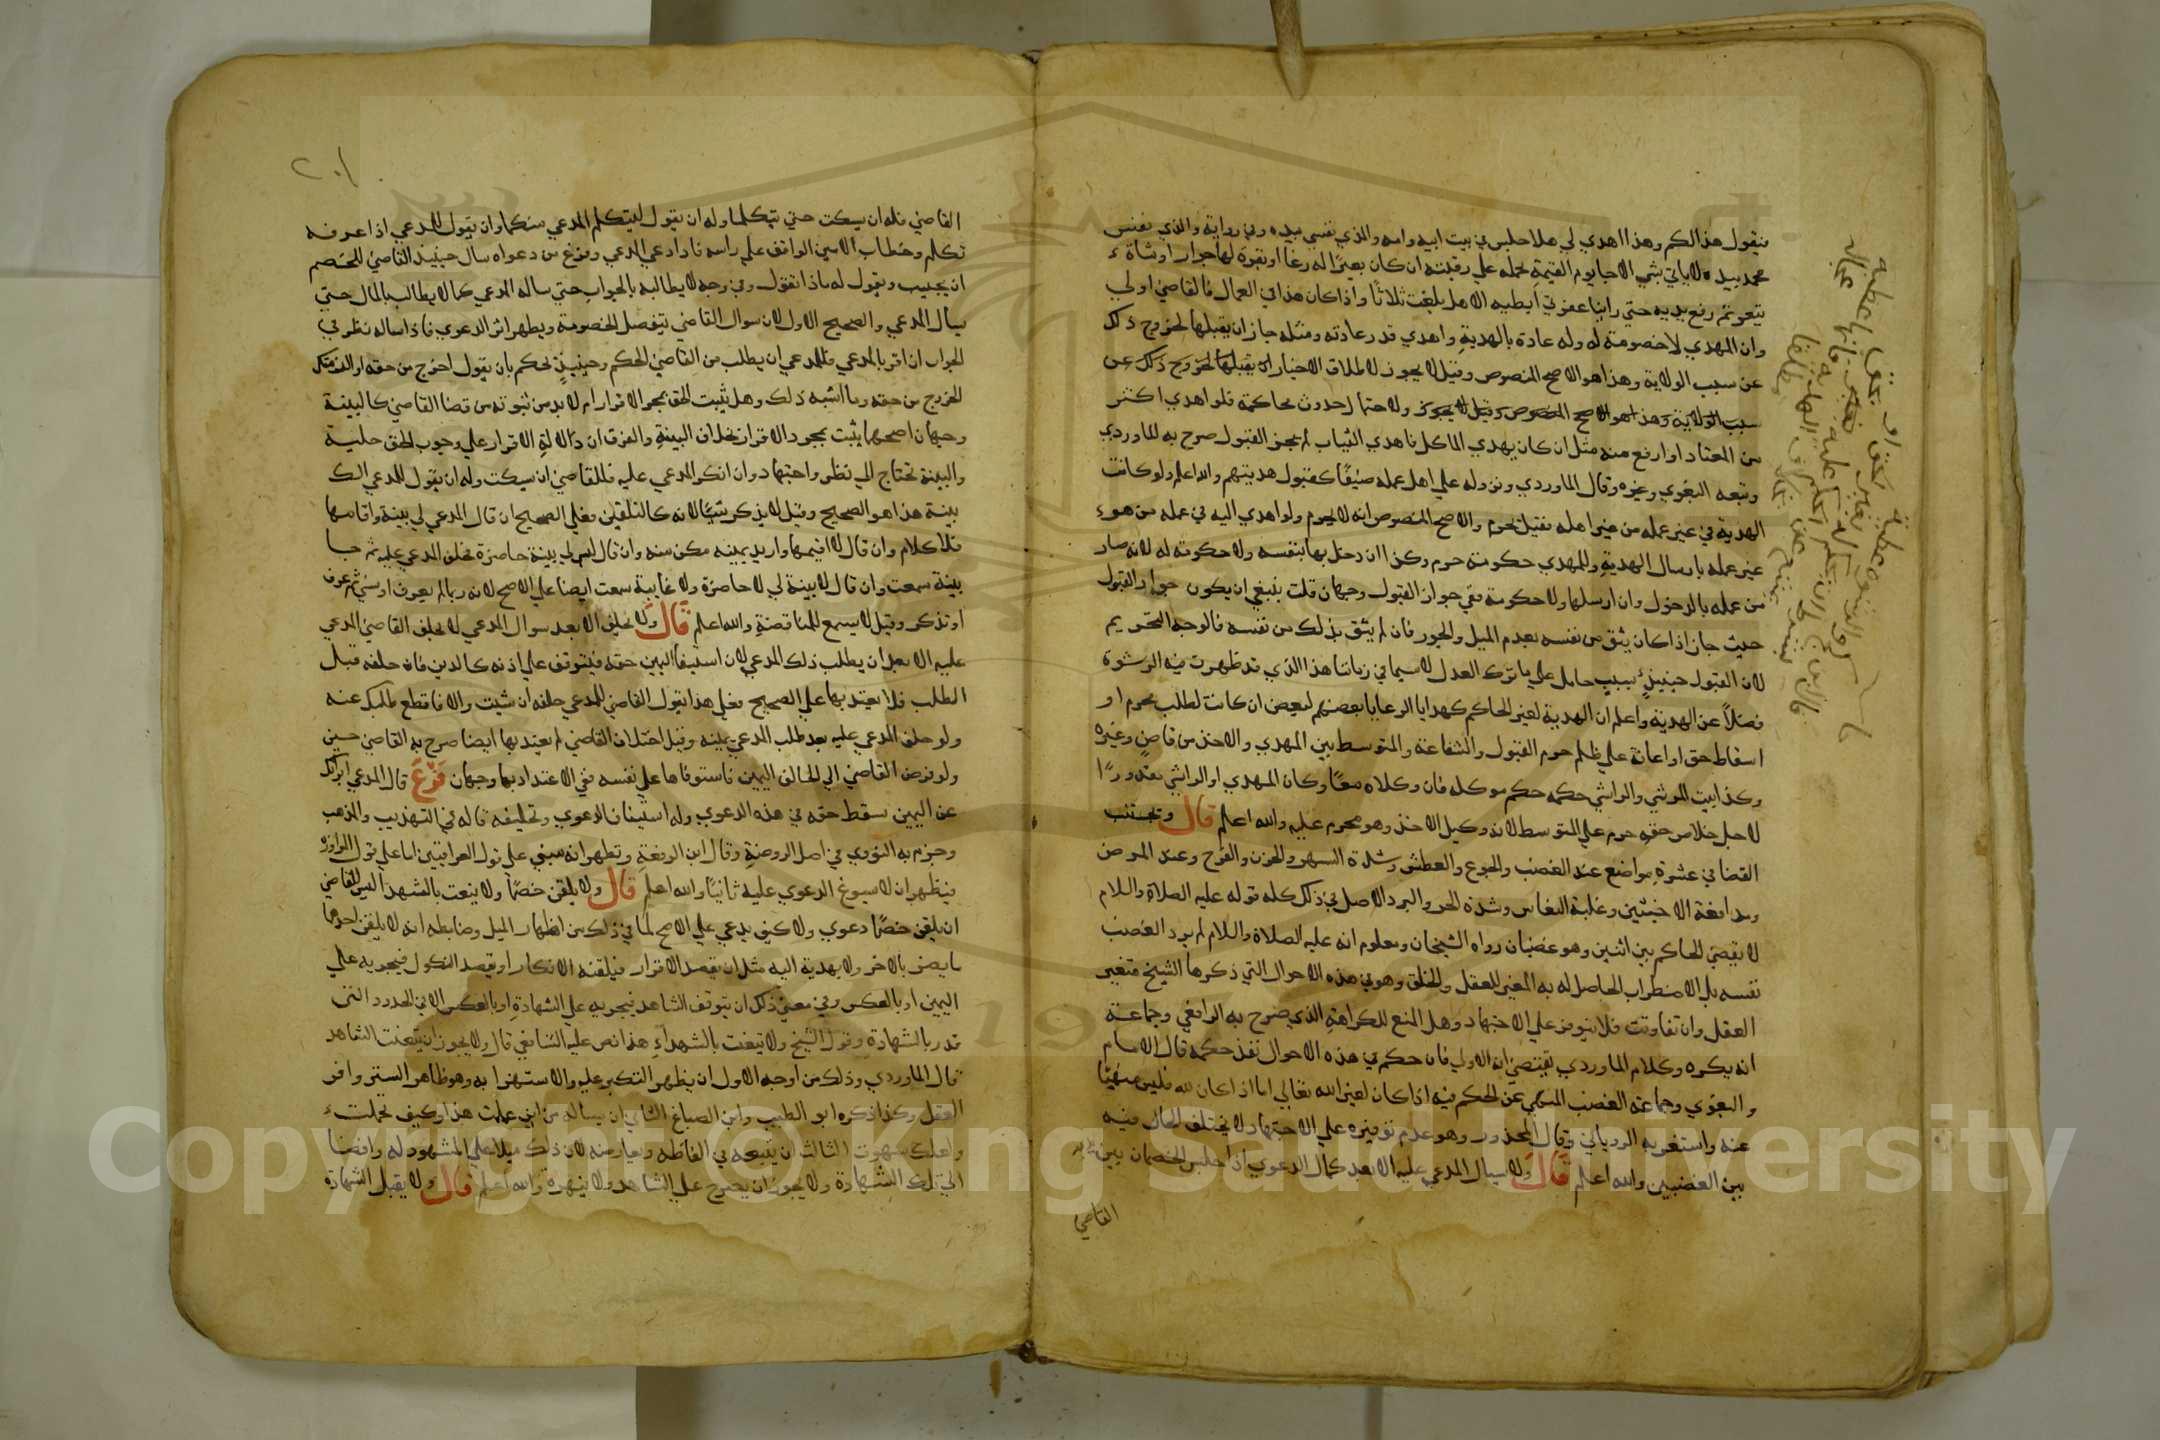 فيقول هذا لكم وهذا اهدي لي هلا جلس في بيت ابيه وامه والذي نفسي بيده وفي رواية والذي نفس
محمد بيده لا ياتي بشي الا جا يوم القيمة يحمله علي رقبته ان كان بعيرا له رغا او بقرة لها خوار او شاة
تيعر ثم رفع يديه حتي راينا عفرتي ابطيه الا هل بلغت ثلاثا واذا كان هذا في العمال فالقاضي اولي
وان المهدي لا خصومة له وله عادة بالهدية واهدي قدر عادته ومثله جاز ان يقبلها لخروج ذلك
عن سبب الولاية وهذا هو الاصح المنصوص وقيل لا يجوز لاطلاق الاخبار ان يقبلها لخروج ذلك عن
سبب الولاية وهذا هو الاصح المنصوص وقيل لا يجوز ولاحتمال حدوث محاكمة فلو اهدي اكثر
من المعتاد او ارفع منه مثل ان كان يهدي الماكل فاهدي الثياب لم يجز القبول صرح به الماوردي
وتبعه البغوي وغيره وقال الماوردي ونزوله علي اهل عمله ضيفا كقبول هديتهم والله اعلم ولو كانت
الهدية في غير عمله من غير اهله فقيل تحرم والاصح المنصوص انه لا يحرم ولو اهدي اليه في عمله من هو
غير عمله بارسال الهدية وللمهدي حكومة حرم وكذا ان دخل بها بنفسه ولا حكومة له لانه صار
من عمله بالدخول وان ارسلها ولا حكومة ففي جواز القبول وجهان قلت ينبغي ان يكون جواز القبول
حيث جاز اذا كان يثق من نفسه بعدم الميل والجور فان لم يثق بذلك من نفسه فالوجه التحريم
لان القبول حينيذ سبب حامل علي ما ترك العدل لا سيما في زماننا هذا الذي قد ظهرت فيه الرشوة
فضلا عن الهدية واعلم ان الهدية لغير الحاكم كهدايا الرعايا بعضهم لبعض ان كانت لطلب محرم او
اسقاط حق او اعانة علي ظلم حرم القبول والشفاعة والمتوسط بين المهدي والاخذ من قاض وغيره
وكذا بيت المرشي والراشي حكمه حكم موكله فان وكلاه معا وكان المهدي او الراشي معذورا
لاجل خلاص حقه حرم علي المتوسط لانه وكيل الاخذ وهو محرم عليه والله اعلم قال ويجتنب
القضا في عشرة مواضع عند الغضب والجوع والعطش وشدة السهر والحزن والفرح وعند المرض
ومدافعة الاخبثين وغلبة النعاس وشدة الحر والبرد الاصل في ذلك كله قوله عليه الصلاة والسلام
لا يقضي الحاكم بين اثنين وهو غضبان رواه الشيخان ومعلوم انه عليه الصلاة والسلام لم يرد الغضب
نفسه بل الاضطراب الحاصل له به المغير للعقل والخلق وهو في هذه الاحوال التي ذكرها الشيخ متغير
العقل وان تفاوتت فلا يتوفر علي الاجتهاد وهل المنع للكراهة الذي صرح به الرافعي وجماعة
انه يكره وكلام الماوردي يقتضي انه الاولي فان حكم في هذه الاحوال نفذ حكمه قال الامام
والبغوي وجماعة الغضب المنهي عن الحكم فيه اذا كان لغير الله تعالي اما اذا كان لله فليس منهيا
عنه واستغربه الروياني وقال المحذور وهو عدم توفيره علي الاجتهاد لا يختلف الحال فيه
بين الغضبين والله اعلم قال ولا يسال المدعي عليه الا بعد كمال الدعوي اذا جلس الخصمان بين
القاضي
٢٠١
القاضي فله ان يسكت حتي يتكلما وله ان يقول ليتكلم المدعي منكما وان يقول للمدعي اذا عرفه
تكلم وخطاب الامين الواقف علي راسه فاذا ادعي المدعي وفرغ من دعواه سال حينيذ القاضي الخصم
ان يجيب ويقول له ماذا تقول وفي وجه لا يطالبه بالجواب حتي يساله المدعي كما لا يطالب بالمال حتي
يسال المدعي والصحيح الاول لان سوال القاضي يتفصل الخصومة ويظهر اثر الدعوي فاذا ساله نظر في
الجواب ان اقر بالمدعي فللمدعي ان يطلب من القاضي الحكم وحينيذ يحكم بان يقول اخرج من حقه او الزمتك
الخروج من حقه وما اشبه ذلك وهل يثبت الحق بمجرد الاقرار ام لا بد من ثبوته من قضا القاضي كالبينة
وجهان اصحهما يثبت بمجرد الاقرار بخلاف البينة والفرق ان دلالة الاقرار علي وجوب الحق جلية
والبينة تحتاج الي نظر واجتهاد وان انكر المدعي عليه فللقاضي ان يسكت وله ان يقول للمدعي الك
بينة هذا هو الصحيح وقيل لا يذكر شيا لانه كالتلقين فعلي الصحيح ان قال المدعي لي بينة واقامها
فلا كلام وان قال لا اقيمها واريد يمينه مكن منه وان قال ليس لي بينة حاضرة فحلف المدعي عليه ثم جا
بينة سمعت وان قال لا بينة لي لا حاضرة ولا غايبة سمعت ايضا علي الاصح لانه ربما لم يعرف او نسي ثم عرف
او تذكر وقيل لا يسمع للمناقضة والله اعلم قال ولا يحلف الا بعد سوال المدعي لا يحلف القاضي المدعي
عليه الا بعد ان يطلب ذلك المدعي لان استيفا اليمين حقه فيتوقف علي اذنه كالدين فان حلفه قبل
الطلب فلا يعتد بها علي الصحيح فعلي هذا يقول القاضي للمدعي حلفه ان شيت والا فاقطع طلبك عنه
ولو حلف المدعي عليه بعد طلب المدعي يمينه وقبل احلاف القاضي لم يعتد بها ايضا صرح به القاضي حسين
ولو فوض القاضي الي الحالف اليمين فاستوفاها علي نفسه ففي الاعتداد بها وجهان فرع قال المدعي ابراتك
عن اليمين سقط حقه في هذه الدعوي وله استيناف الدعوي وتحليفه قاله في التهذيب والمذهب
وجزم به النووي في اصل الروضة وقال ابن الرفعة ويظهر انه مبني علي قول العراقيين اما علي قول المراوزة
فيظهر ان لا يسوغ الدعوي عليه ثانيا والله اعلم قال ولا يلقن خصما ولا يتعنت بالشهدا ليس للقاضي
ان يلقن خصما دعوي ولا كيف يدعي علي الاصح لما في ذلك من اظهار الميل وضابطه انه لا يلقن احدهما
ما يضر بالاخر ولا يهديه اليه مثل ان يقصد الاقرار فيلقنه الانكار او يقصد النكول فيجريه علي
اليمين او بالعكس وفي معني ذلك ان يتوقف الشاهد فيجريه علي الشهادة او بالعكس الا في الحدود التي
تدر بالشهادة وقول الشيخ ولا يتعنت بالشهداء هذا نص عليه الشافعي قال ولا يجوز ان يتعنت الشاهد
قال الماوردي وذلك من اوجه الاول ان يظهر التكبر عليه والاستهزا به وهو ظاهر الستر وافر
العقل وكذا ذكره ابو الطيب وابن الصباغ الثاني ان يساله من اين علمت هذا وكيف تحملت
ولعلك سهوت الثالث ان يتبعه في الفاظه ويعارضه لان ذلك ميلا علي المشهود له وافضا
الي ترك الشهادة ولا يجوز ان يصرخ علي الشاهد ولا ينهره والله اعلم قال ولا يقبل الشهادة
Copyright © King Saud University